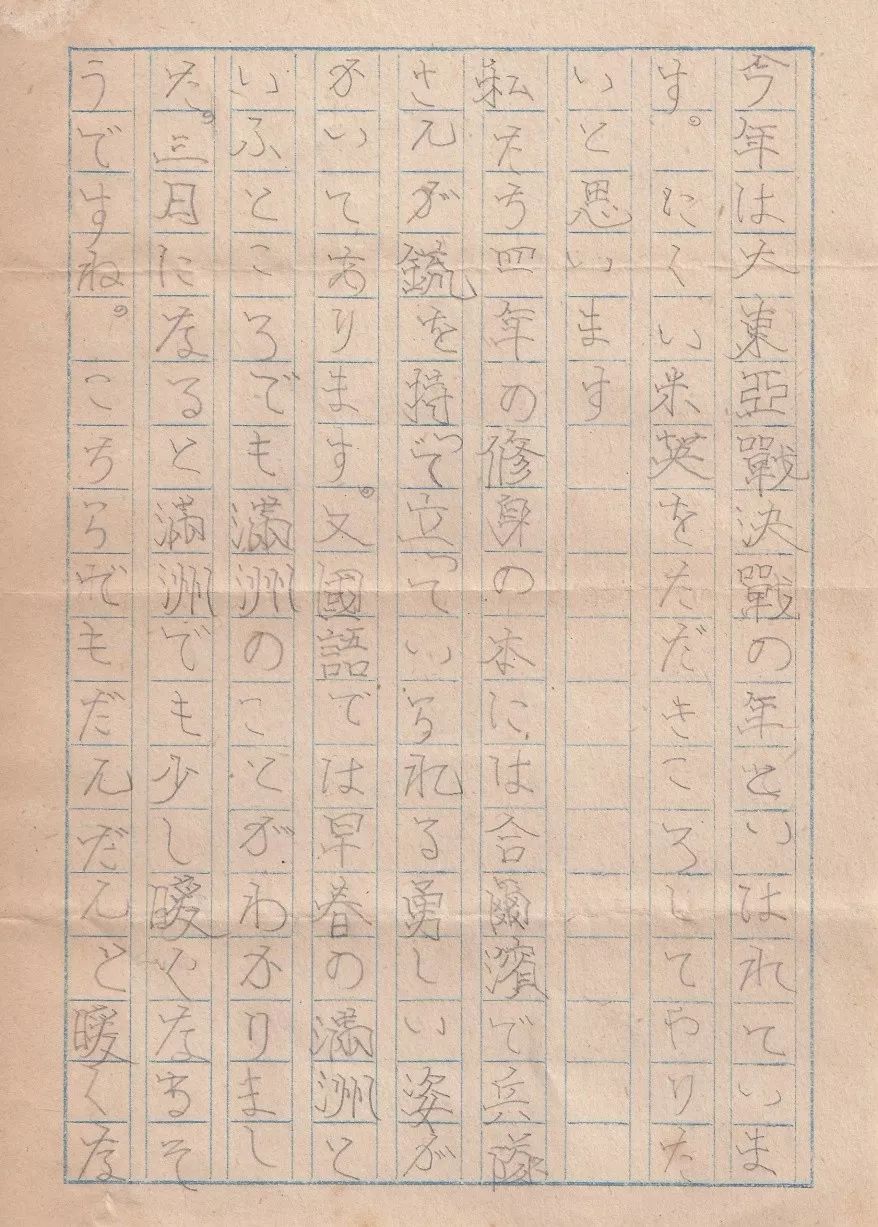 今年は大東亞戰決戰の年といはれていま
す。にくい米英をたたきころしてやりた
いと思います
私たち四年の修身の本には合爾濱で兵隊
さんが銃を持って立っていられる勇しい姿が
かいてあります。又國語では早春の満洲と
いふところでも満洲のことがわかりまし
た。三月になると満洲でも少し暖くなるそ
うですね。こちらでもだんだんと暖くな